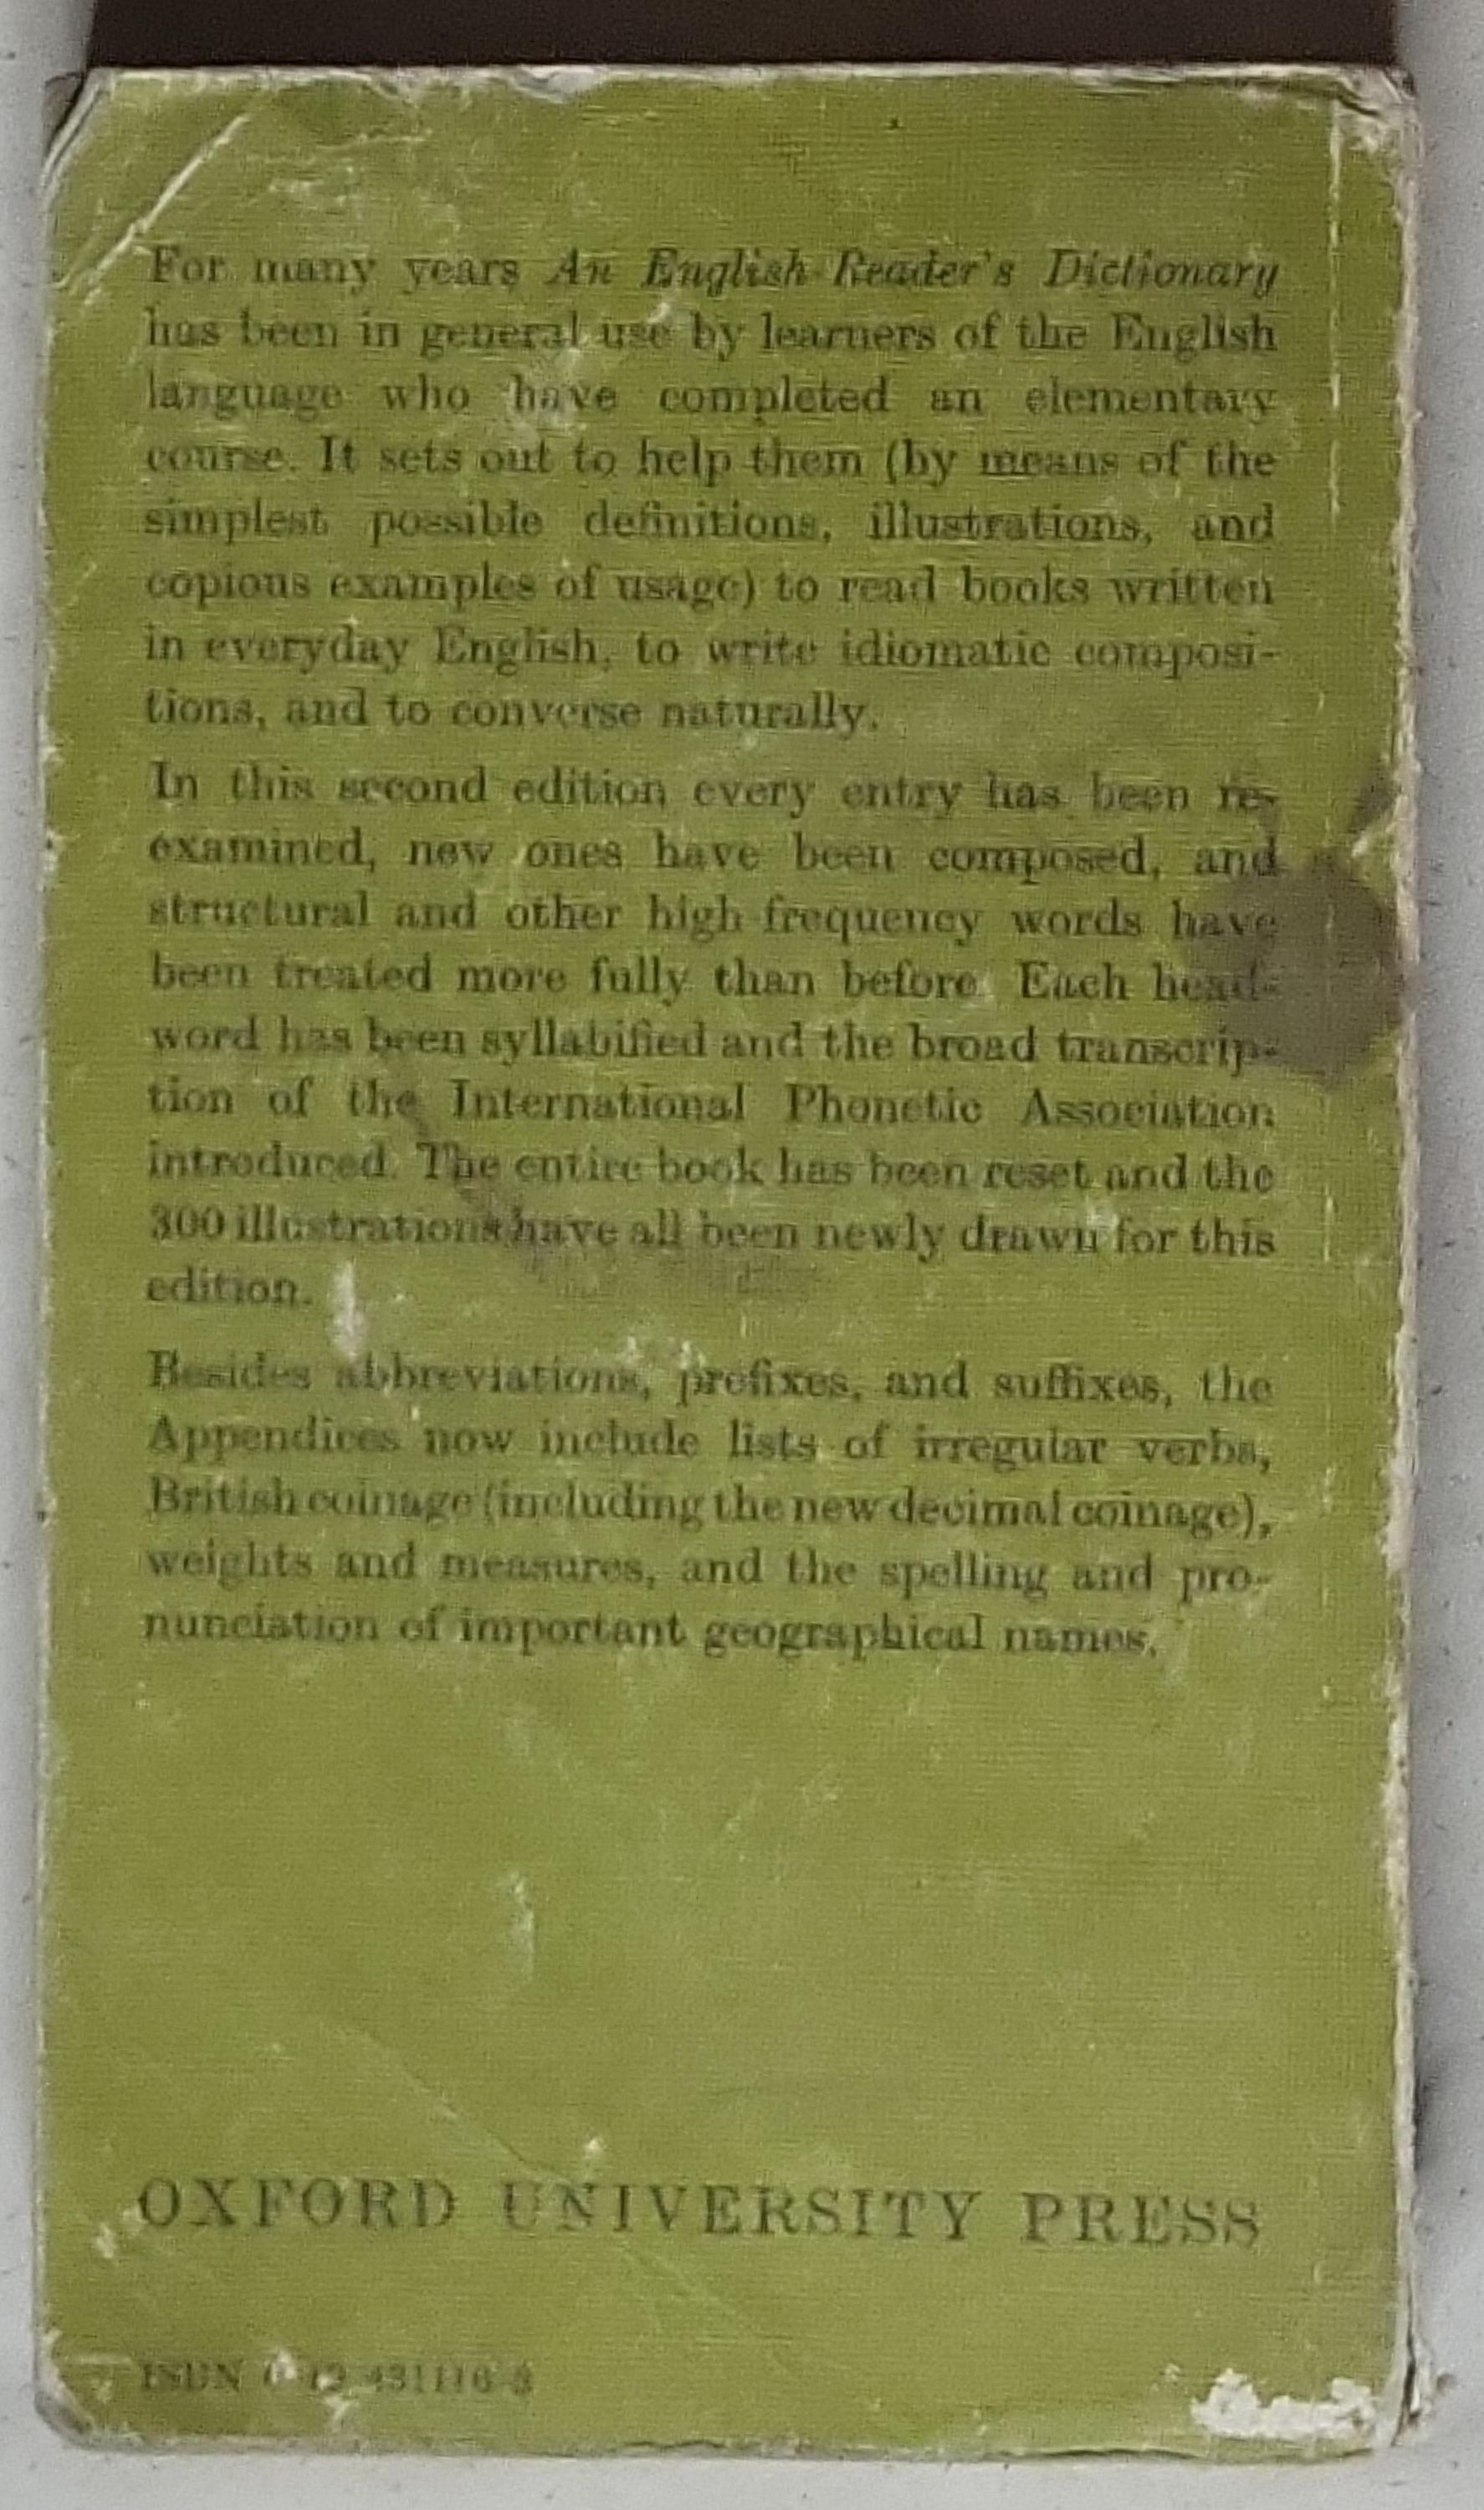 For many years An English Reader's Dictionary
has been in general use by learners of the English
language who have completed an elementary
course. It sets out to help them (by means of the
simplest possible definitions, illustrations, and
copious examples of usage) to read books written
in everyday English, to write idiomatic composi-
tions, and to converse naturally.
In this second edition every entry has been re-
examined, new ones have been composed, and
structural and other high-frequency words have
been treated more fully than before. Each head-
word has been syllabified and the broad transcrip-
tion of the International Phonetic Association
introduced. The entire book has been reset and the
300 illustrations have all been newly drawn for this
edition.
Besides abbreviations, prefixes, and suffixes, the
Appendices now include lists of irregular verbs,
British coinage (including the new decimal coinage),
weights and measures, and the spelling and pro-
nunciation of important geographical names.
OXFORD UNIVERSITY PRESS
ISBN 0 19 431116 3